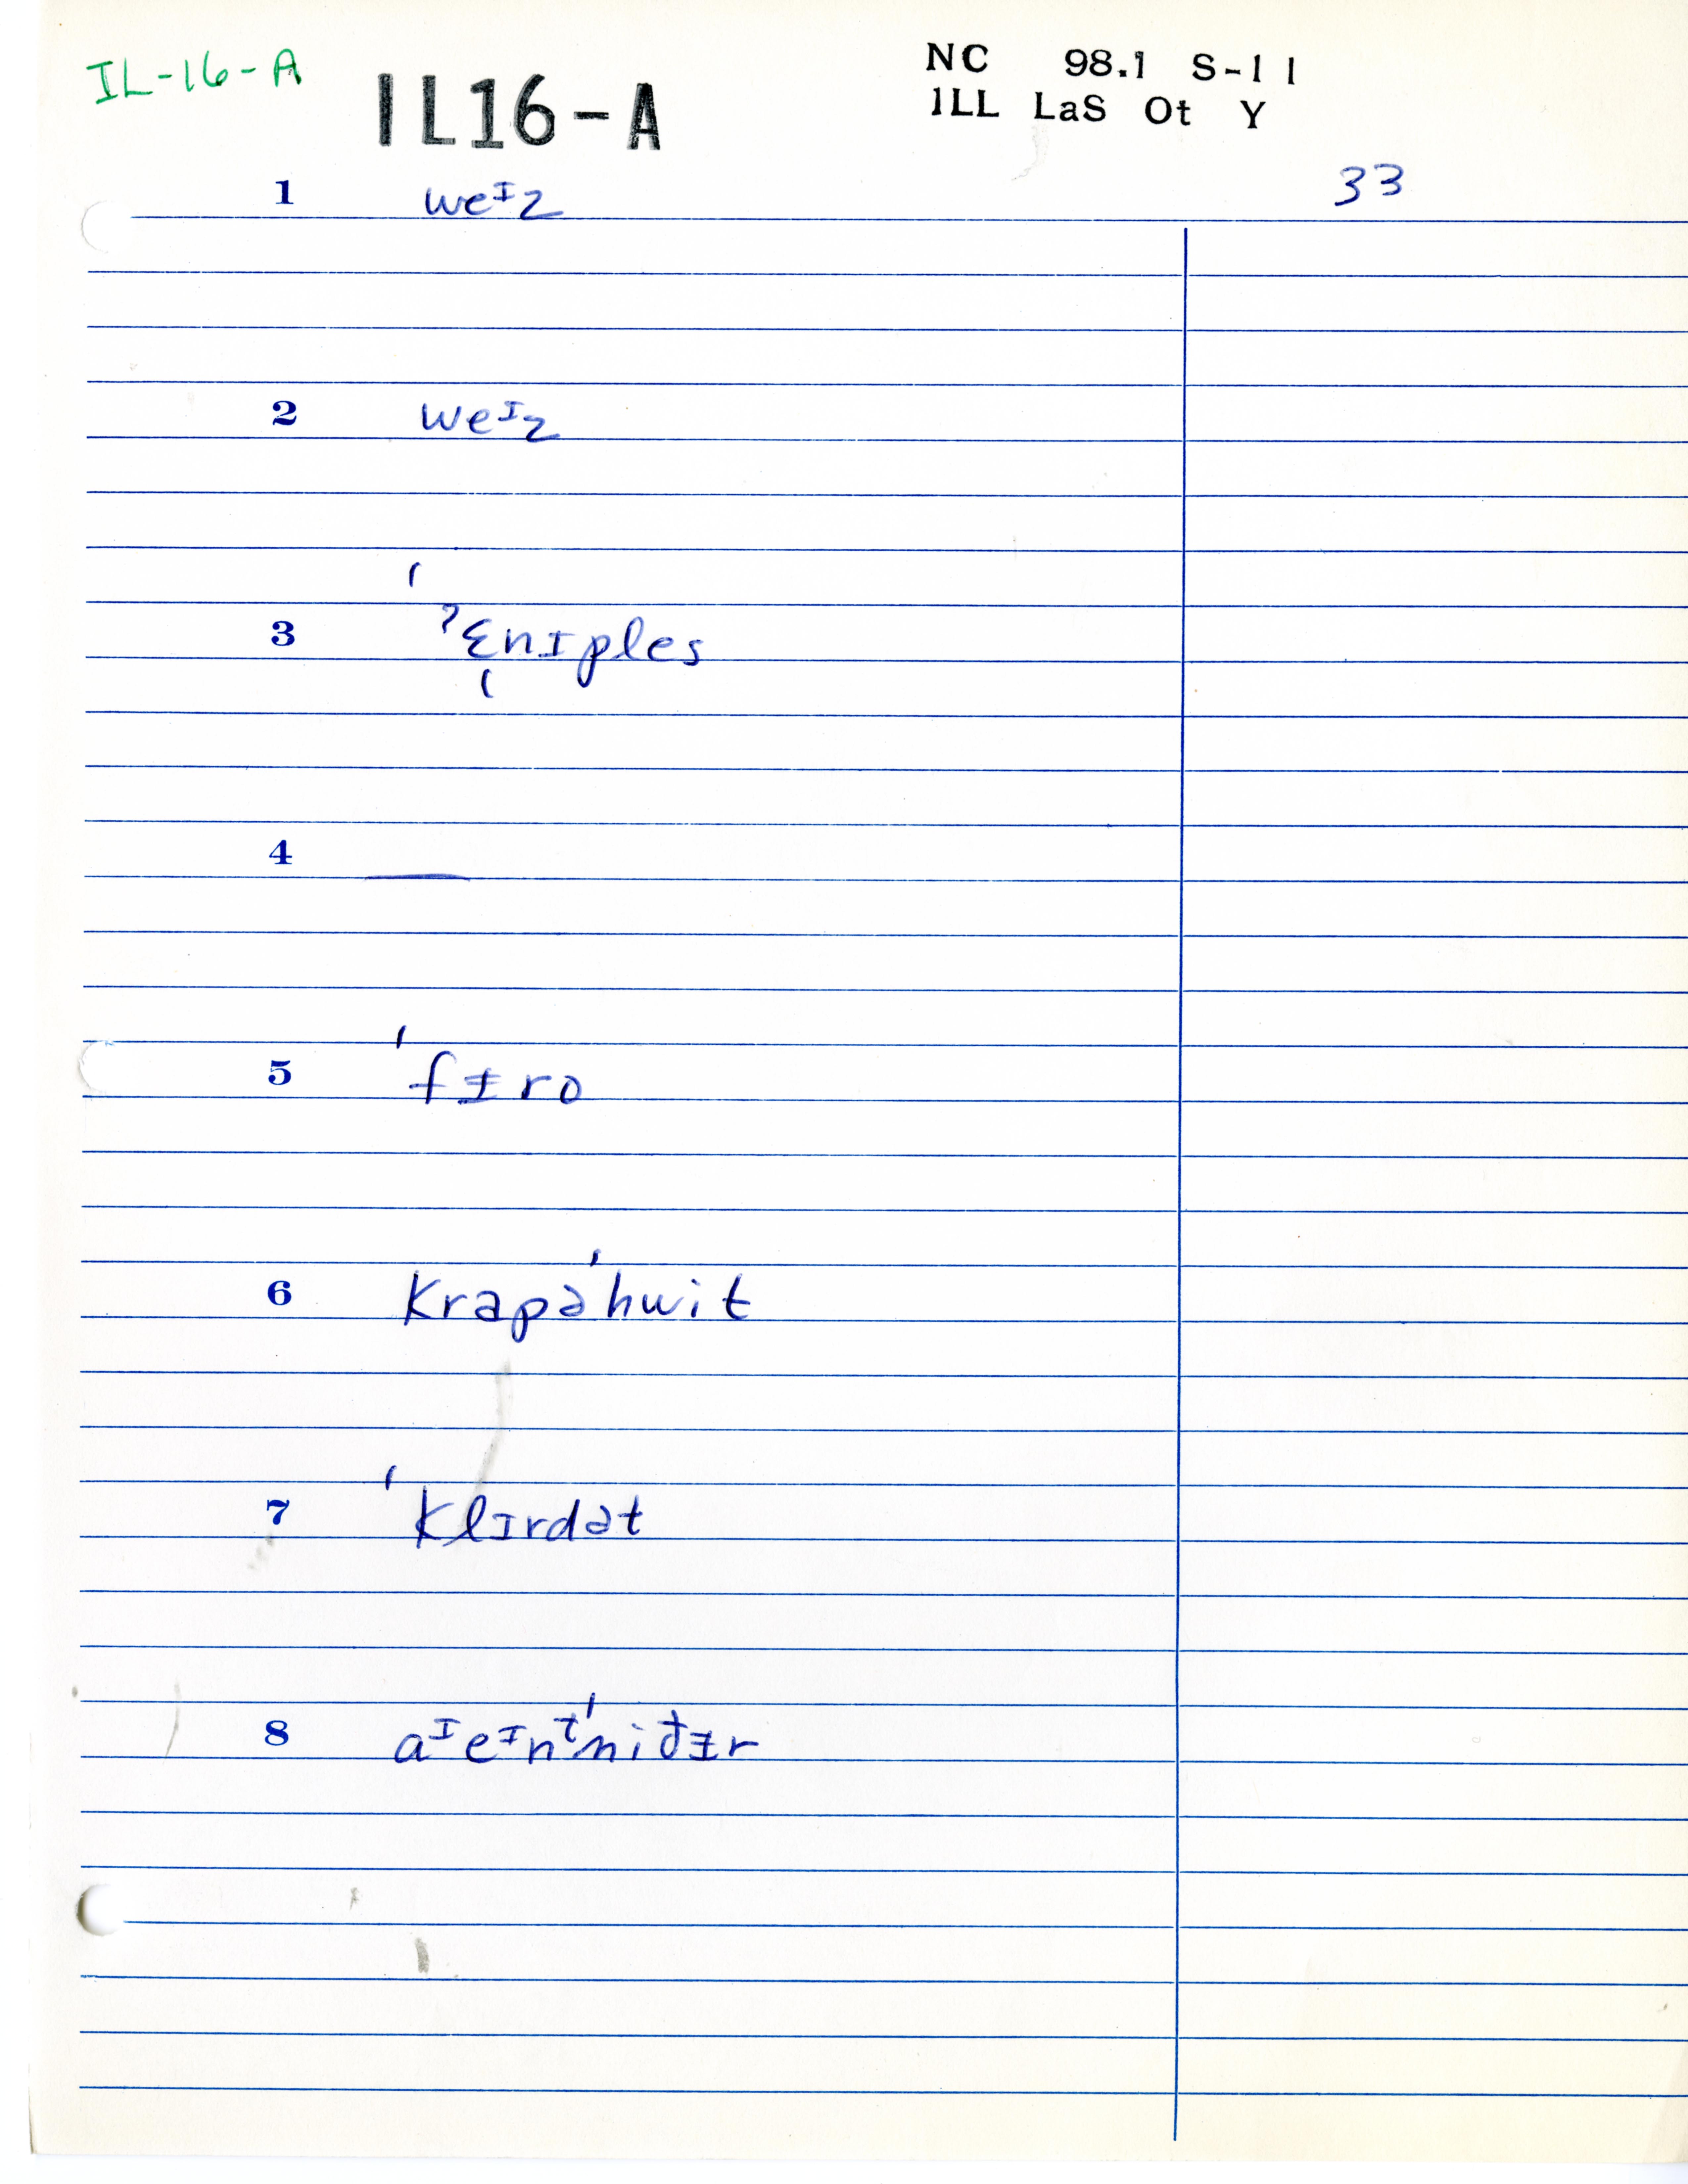 IL-16-A
IL16-A
NC 98.1 S-11
ILL LaS Ot Y
33
1 weᴵz
2 weᴵz
3 ˈˀɛ̩nɪples
4 —
5 ˈfɪro
6 krapəˈhwit
7 ˈklɪrdət
8 aᴵeᴵnᵗˈniđɨr